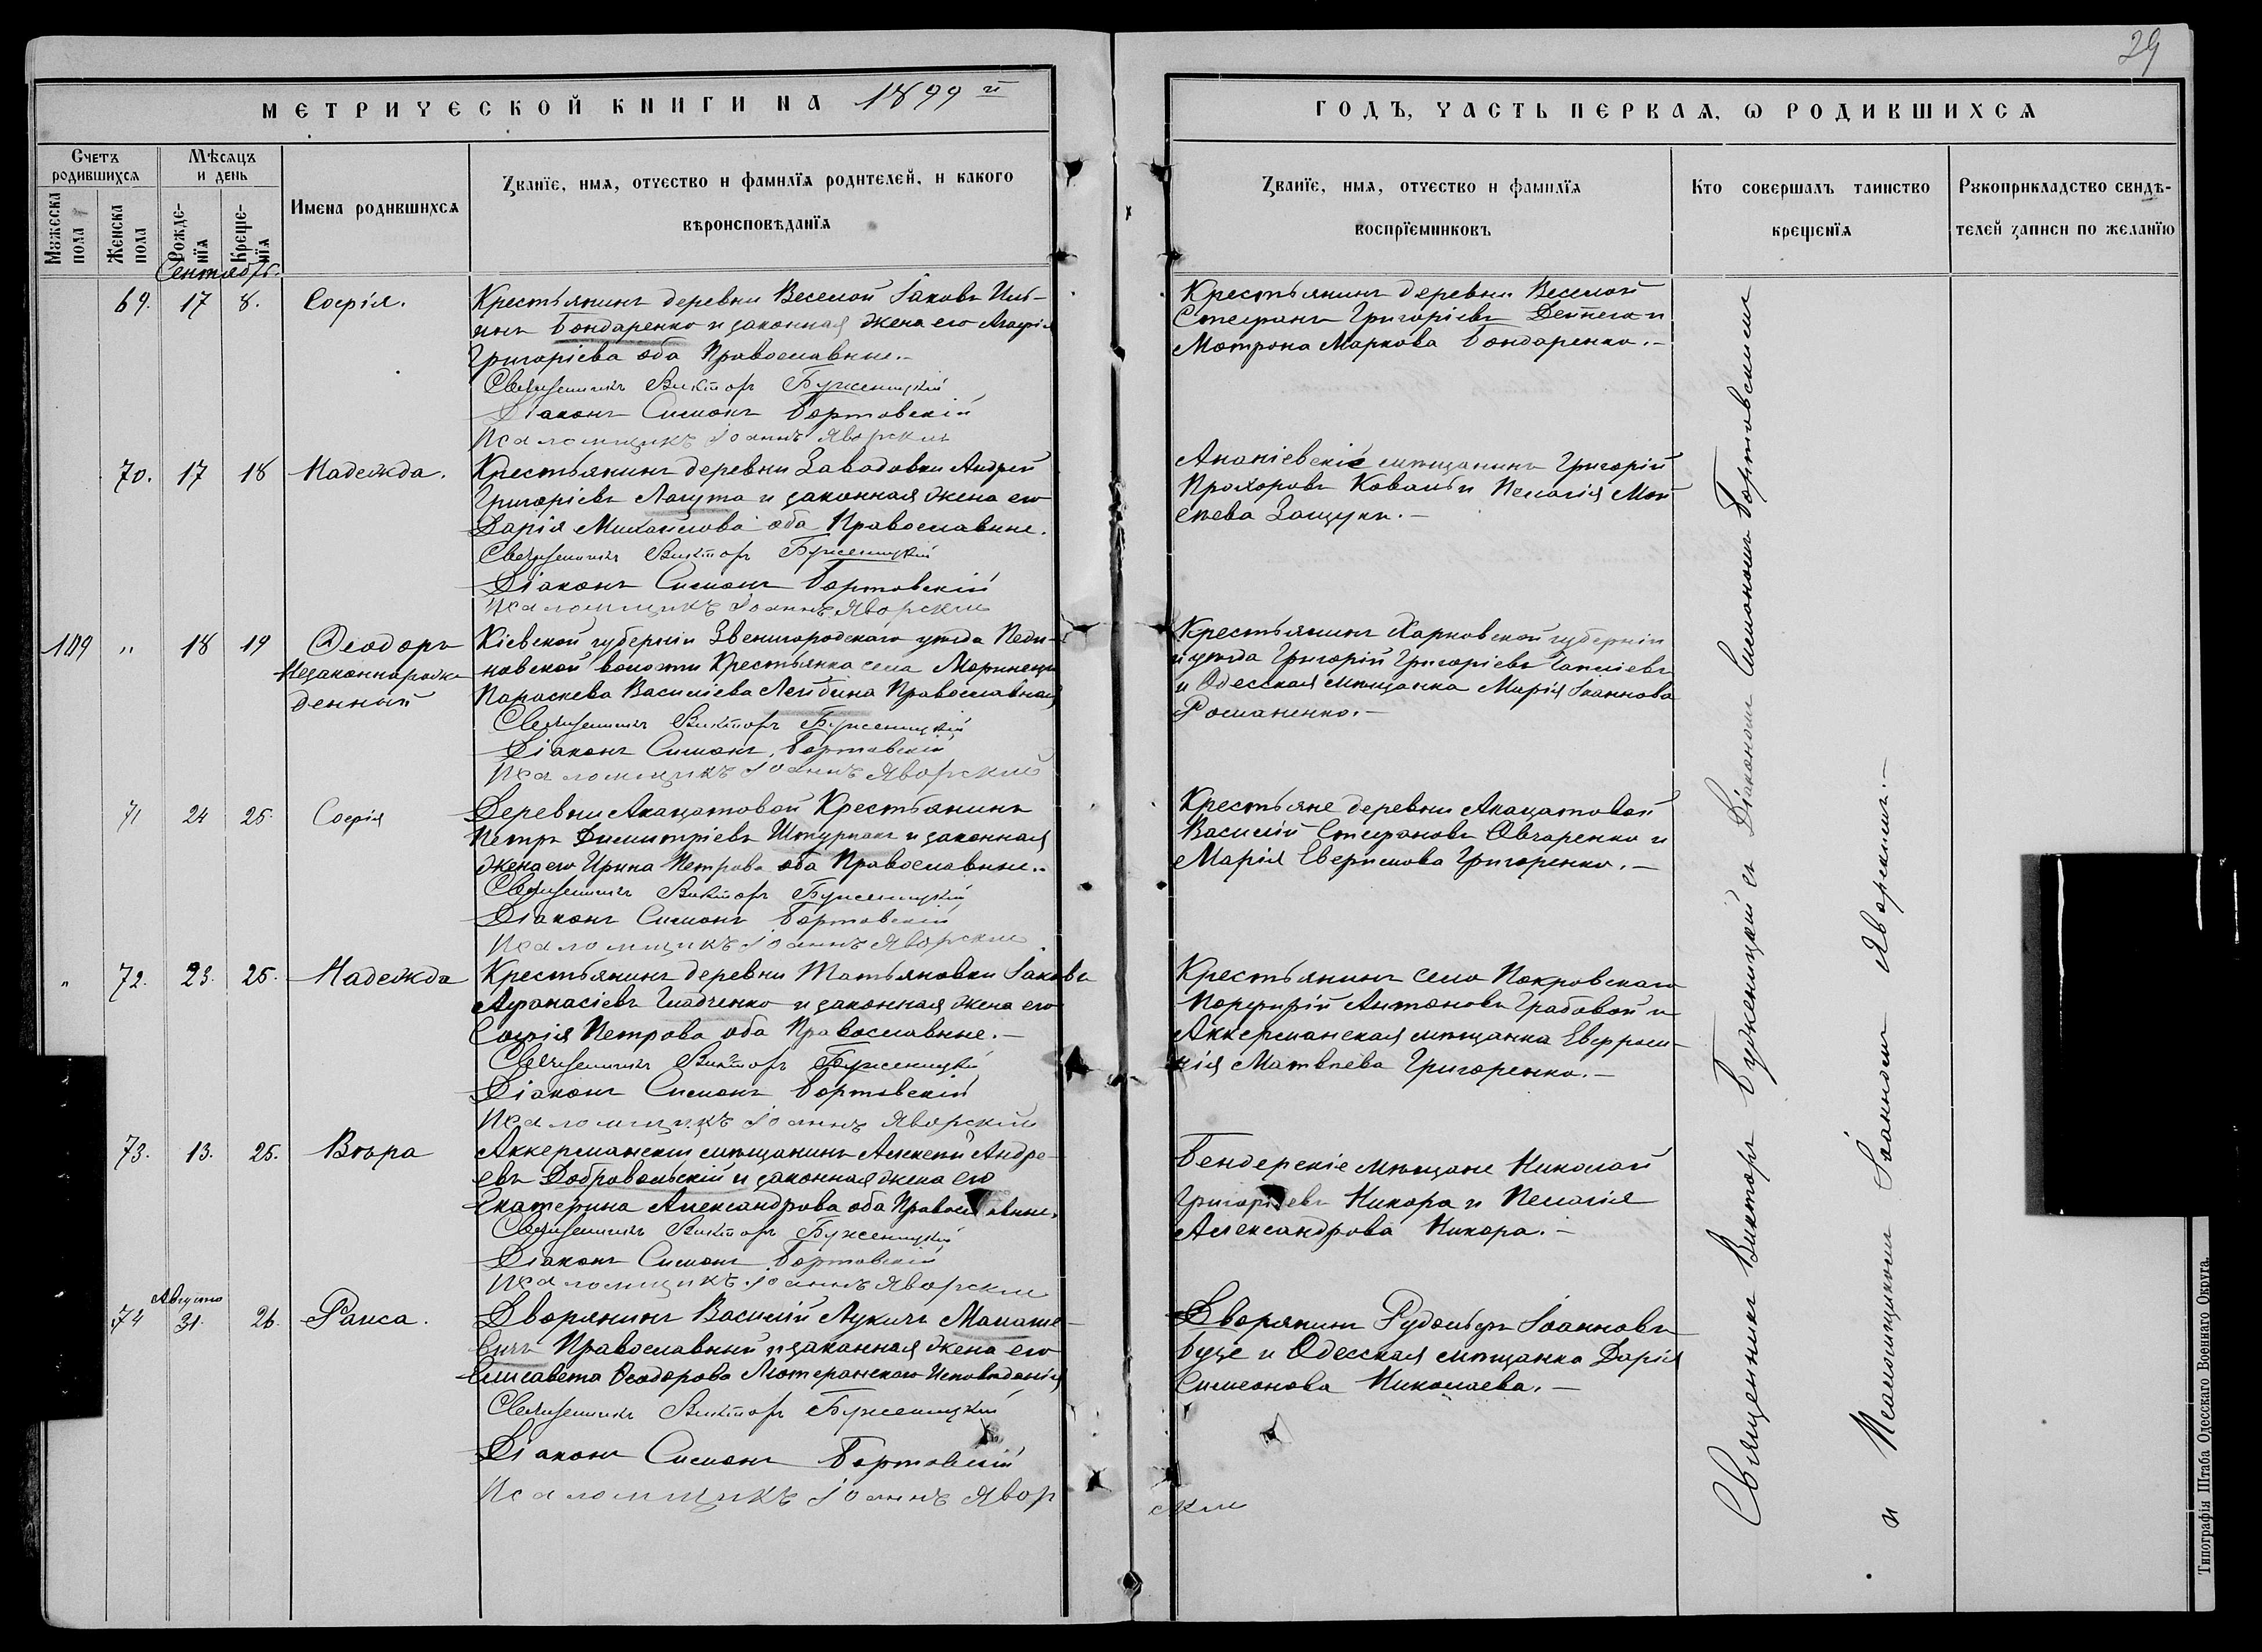 29
МЕТРИЧЕСКОЙ КНИГИ НА 1899 й
ГОДЪ, ЧАСТЬ ПЕРВАЯ, Ѡ РОДИВШИХСЯ
Счетъ родившихся
Мѣсяцъ и день
Мужеска пола
Женска пола
Рожденїя
Крещенїя
Имена родившихся
Званїе, имя, отчество и фамилїя родителей, и какого
вѣроисповѣданїя
Званїе, имя, отчество и фамилїя
воспрїемниковъ
Кто совершалъ таинство
крещенїя
Рукоприкладство свидѣ-
телей записи по желанїю
Сентябрь.
69. 17 8. Софія.
Крестьянинъ деревни Веселой Іаковъ Иль-
инъ Бондаренко и законная жена его Агафія
Григоріева оба Православные.-
Священникъ Викторъ Буженицкій
Діаконъ Симонъ Бортовскій
Псаломщикъ Іоаннъ Яворскій
Крестьянинъ деревни Веселой
Стефанъ Григоріевъ и
Мотрона Маркова Бондаренко.-
70. 17 18 Надежда.
Крестьянинъ деревни Завадовки Андрей
Григоріевъ Лагута и законная жена его
Дарія Михайлова оба Православные.
Священникъ Викторъ Буженицкій
Діаконъ Симонъ Бортовскій
Псаломщикъ Іоаннъ Яворскій
Ананіевскіе мѣщанинъ Григорій
Прохоровъ Коваль и Пелагія Мои
сѣева Защукъ.-
109 " 18 19 Ѳеодоръ
Незаконнорож-
денный
Кіевской губерніи Звенигородскаго уѣзда Педи-
новской волости Крестьянка села Моринецъ
Параскева Василіева Лейбина Православная
Священникъ Викторъ Буженицкій
Діаконъ Симонъ Бортовскій
Псаломщикъ Іоаннъ Яворскій
Крестьянинъ Харковской губерніи
и уѣзда Григорій Григоріевъ
и Одесская мѣщанка Марія Іоаннова
Романенко.-
71 24 25. Софія
Деревни Акацатовой Крестьянинъ
Петръ Димитріевъ Штурмакъ и законная
жена его Ирина Петрова оба Православные..
Священникъ Викторъ Буженицкій
Діаконъ Симонъ Бортовскій
Псаломщикъ Іоаннъ Яворскій
Крестьяне деревни Акацатовой
Василій Стефановъ Овчаренко и
Марія Григоренко.-
" 72. 23. 25. Надежда
Крестьянинъ деревни Татьяновки Іаковъ
Афанасіевъ Гладченко и законная жена его
Софія Петрова оба Православные.-
Священникъ Викторъ Буженицкій
Діаконъ Симонъ Бортовскій
Псаломщикъ Іоаннъ Яворскій
Крестьянинъ села Покровскаго
Порфирій Антоновъ Грабовой и
Аккерманская мѣщанка Евфроси-
нія Матвѣева Григоренко.-
73. 13. 25. Вѣра
Аккерманскій мѣщанинъ Алексѣй Андре-
евъ Добровольскій и законная жена его
Екатерина Александрова оба Православные.
Священникъ Викторъ Буженицкій
Діаконъ Симонъ Бортовскій
Псаломщикъ Іоаннъ Яворскій
Бендерскіе мѣщане Николай
Григоріевъ Никора и Пелагія
Александрова Никора.-
Августа
74 31. 26. Раиса.
Дворянинъ Василій Лукичъ Малаше-
вичъ Православный и законная жена его
Елисавета Ѳеодорова Лютеранскаго Исповѣданія
Священникъ Викторъ Буженицкій
Діаконъ Симонъ Бортовскій
Псаломщикъ Іоаннъ Явор
скій
Дворянинъ Рудольфъ Іоанновъ
Буце и Одесская мѣщанка Дарія
Симеонова Николаева.-
Священникъ Викторъ Буженицкій съ Діакономъ Симономъ Бортовскимъ
и Псаломщикомъ Іоанномъ Яворскимъ.-
Типографія Штаба Одесскаго Военнаго Округа.